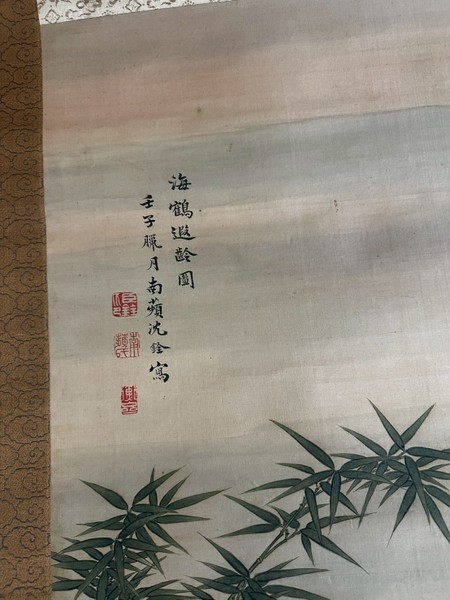 海鶴遐齡圖
壬子臘月南蘋沈銓寫